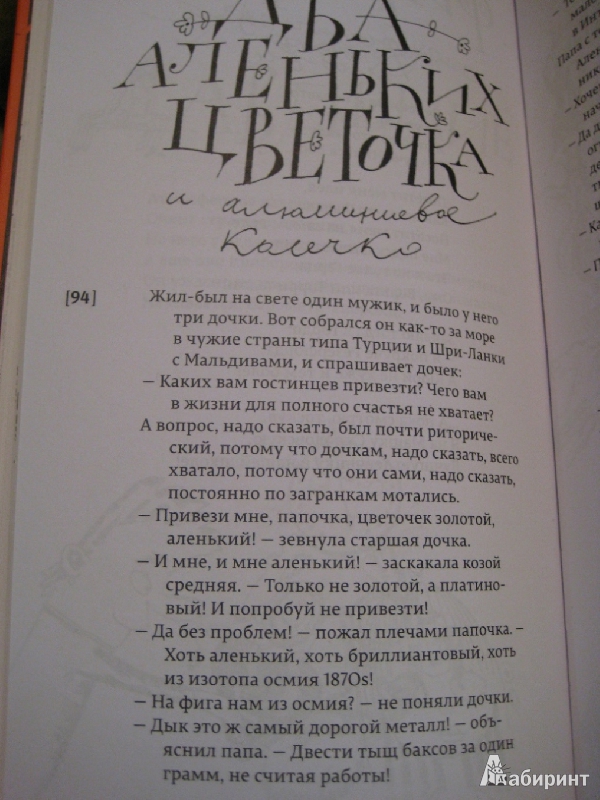 ДВА
АЛЕНЬКИХ
ЦВЕТОЧКА
и алюминиевое
колечко
[94]
Жил-был на свете один мужик, и было у него
три дочки. Вот собрался он как-то за море
в чужие страны типа Турции и Шри-Ланки
с Мальдивами, и спрашивает дочек:
— Каких вам гостинцев привезти? Чего вам
в жизни для полного счастья не хватает?
А вопрос, надо сказать, был почти риториче-
ский, потому что дочкам, надо сказать, всего
хватало, потому что они сами, надо сказать,
постоянно по загранкам мотались.
— Привези мне, папочка, цветочек золотой,
аленький! — зевнула старшая дочка.
— И мне, и мне аленький! — заскакала козой
средняя. — Только не золотой, а платино-
вый! И попробуй не привезти!
— Да без проблем! — пожал плечами папочка. —
Хоть аленький, хоть бриллиантовый, хоть
из изотопа осмия 187Os!
— На фига нам из осмия? — не поняли дочки.
— Дык это ж самый дорогой металл! — объ-
яснил папа. — Двести тыщ баксов за один
грамм, не считая работы!
Лабиринт